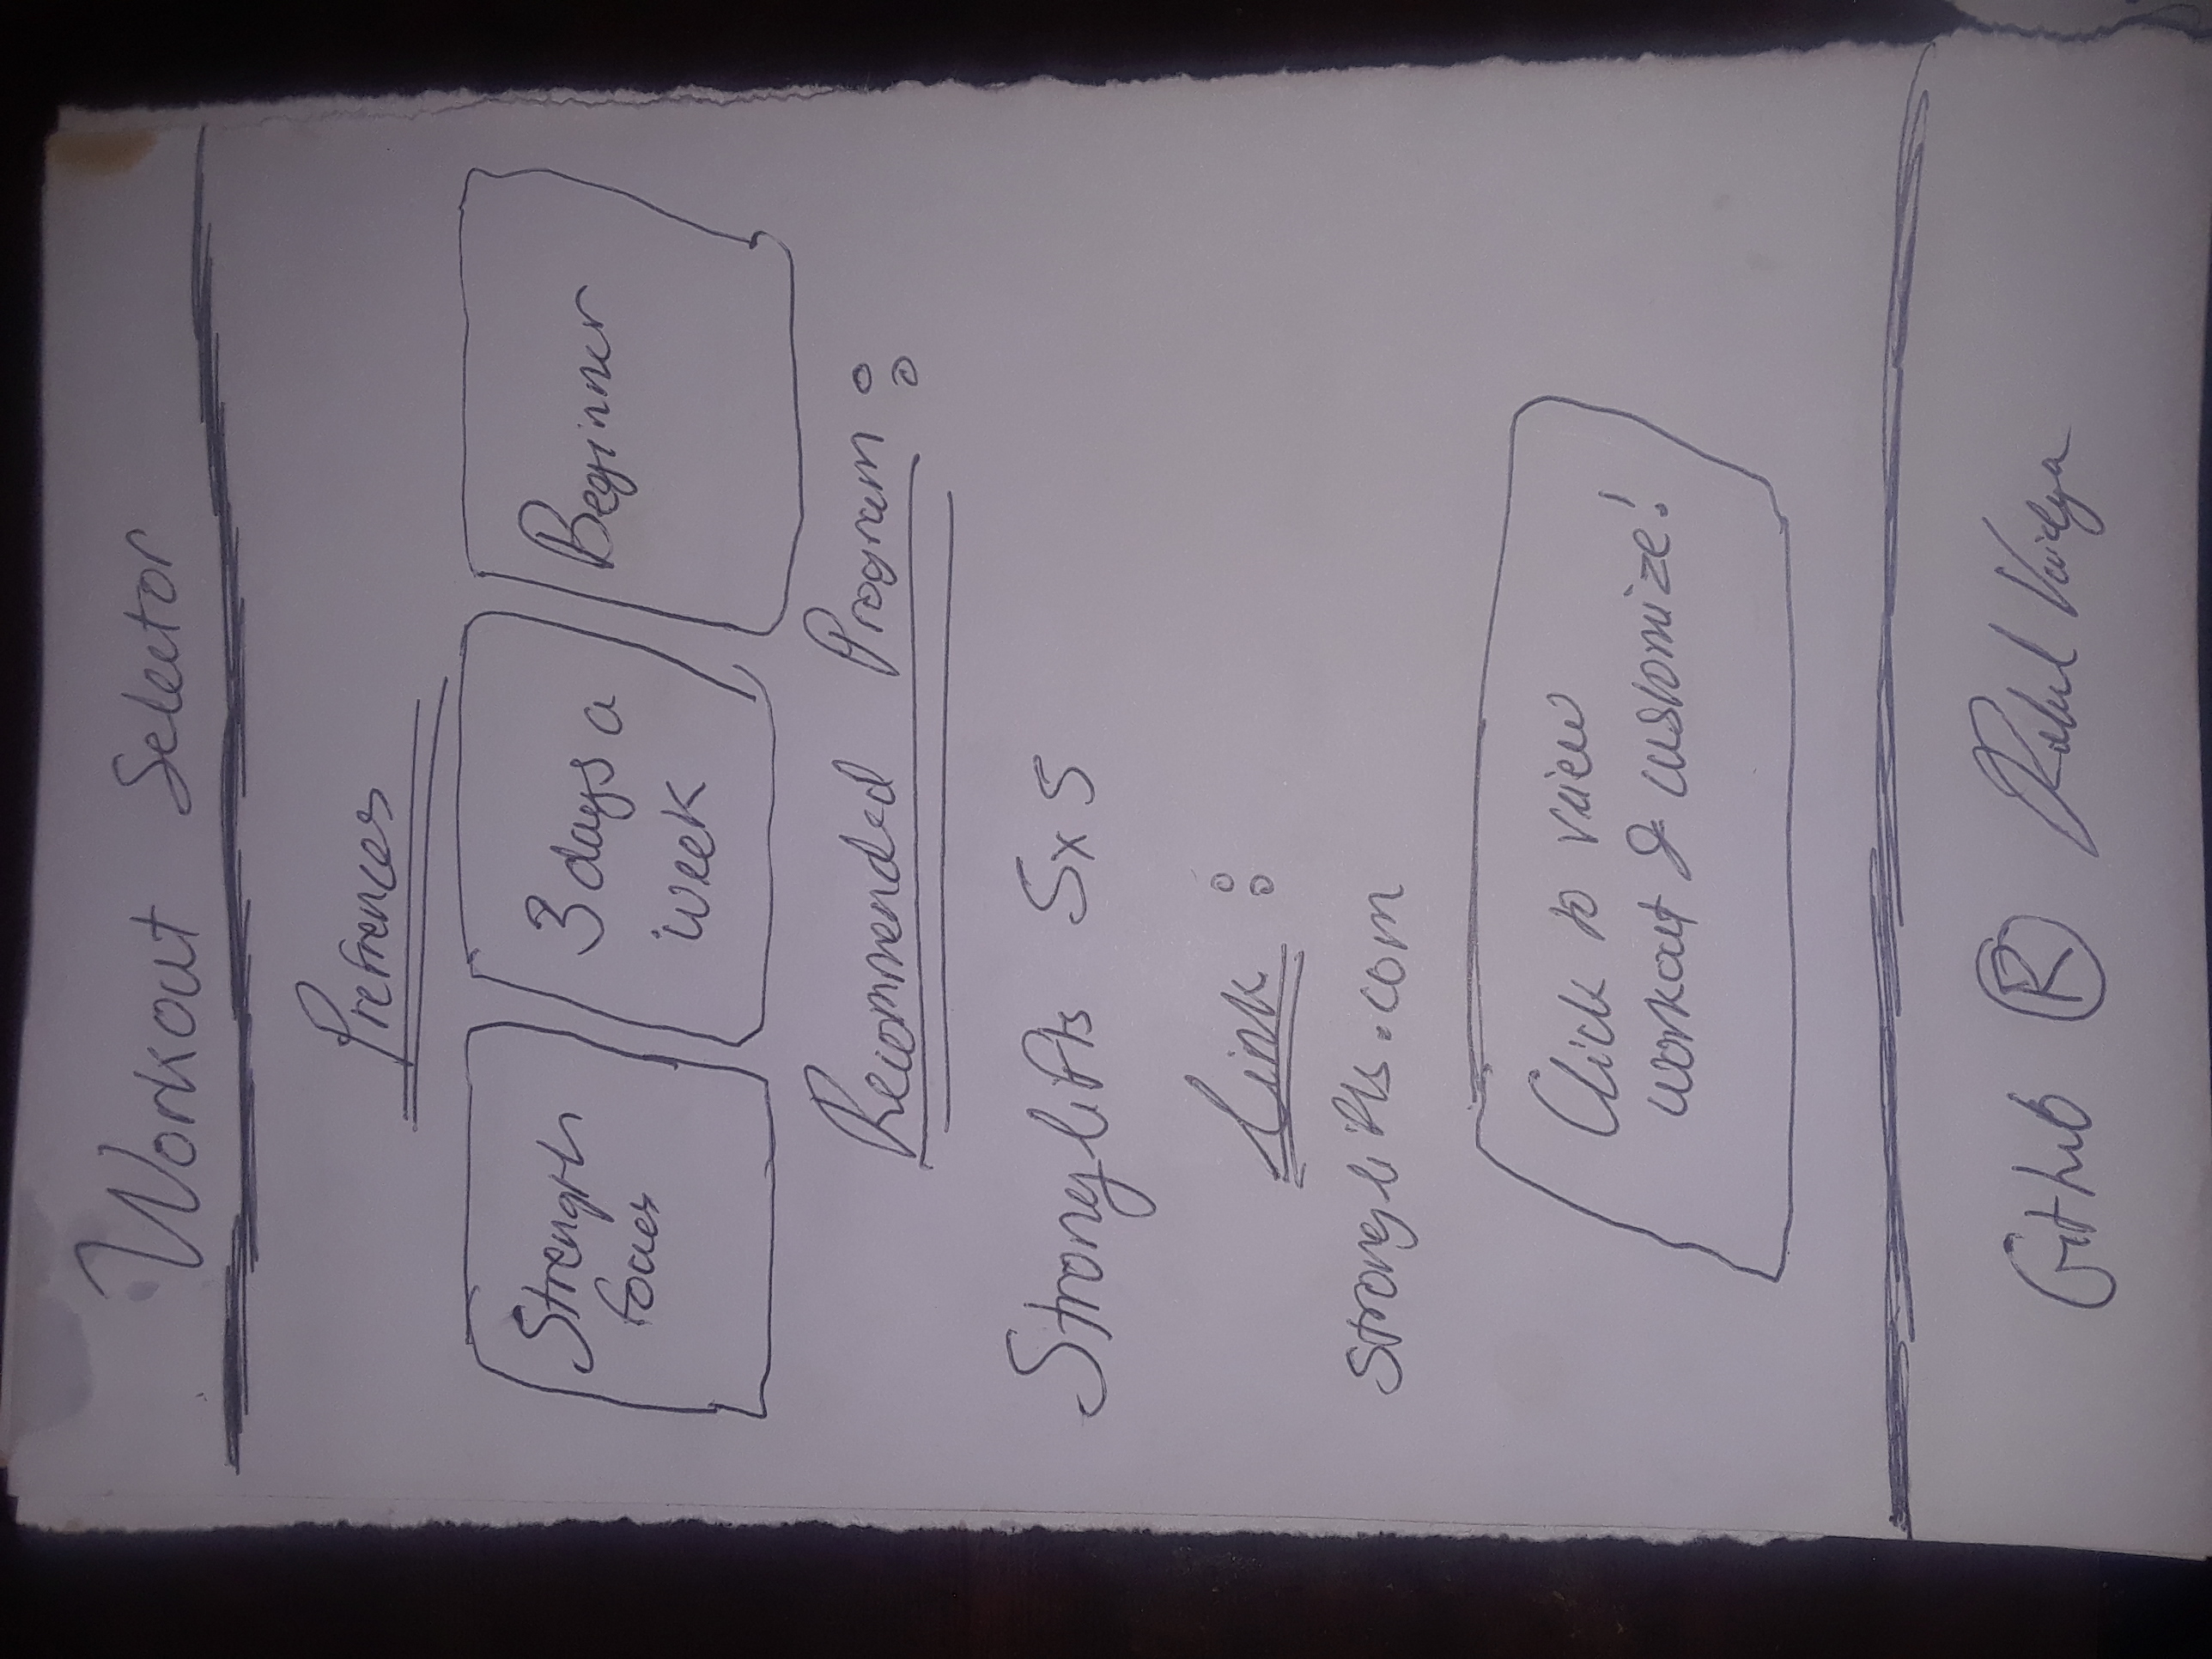 Workout Selector
Prefrences
Strength
focus
3 days a
week
Beginner
Recommended Program :
Stronglifts 5x5
Link :
stronglifts.com
Click to view
workout & customize!
Github R Rahul Vaidya